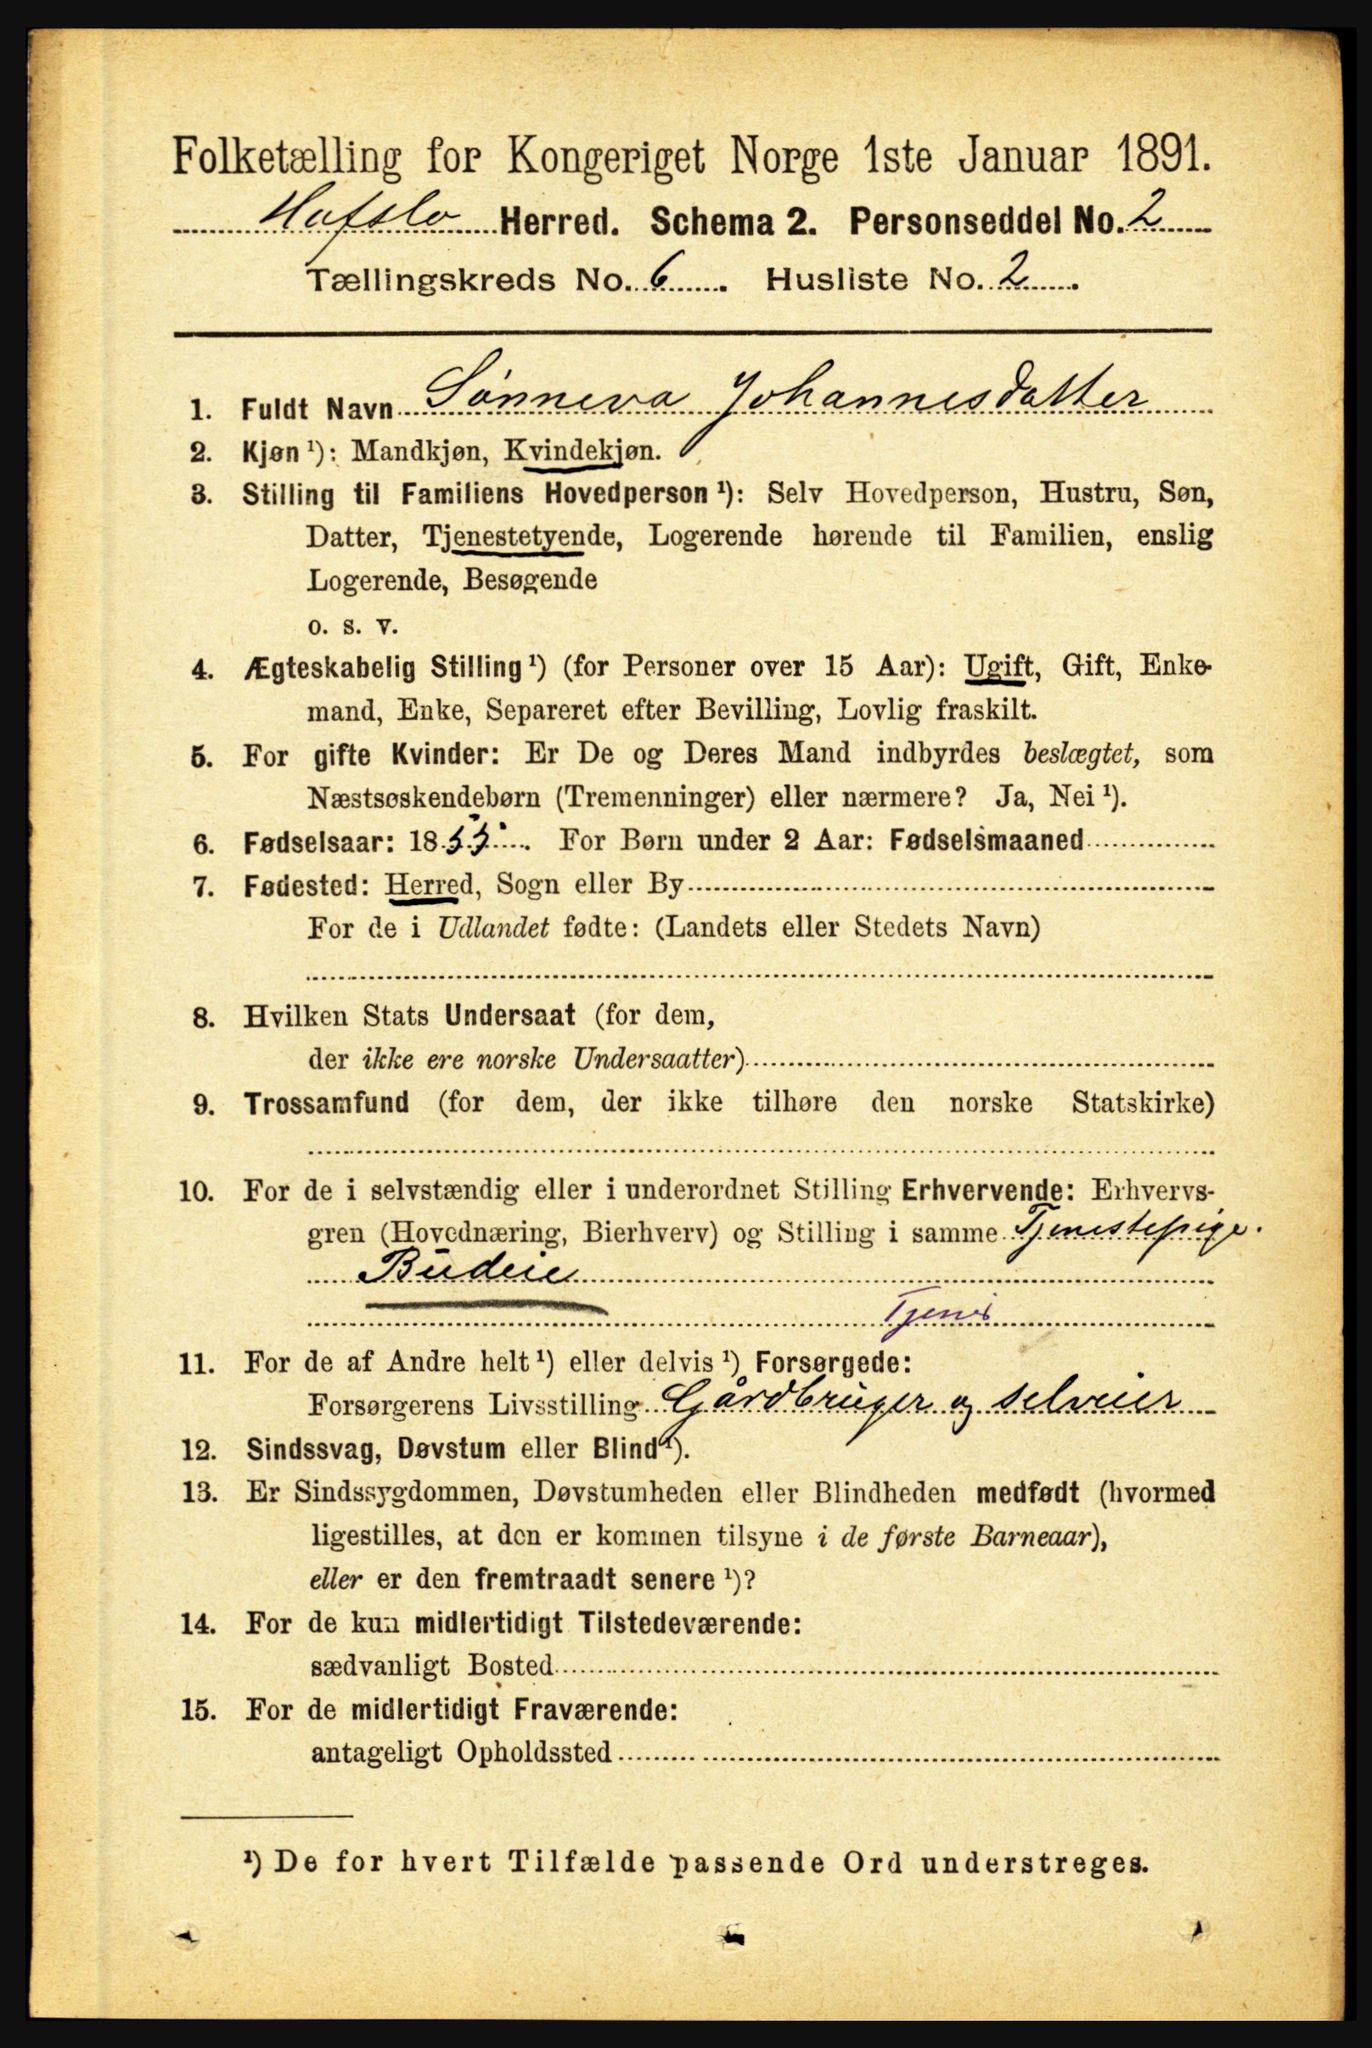 Folketælling for Kongeriget Norge 1ste Januar 1891.
Hafslo Herred. Schema 2. Personseddel No. 2
Tællingskreds No. 6. Husliste No. 2.
1. Fuldt Navn Sønneva Johannesdatter
2. Kjøn ¹): Mandkjøn, Kvindekjøn.
3. Stilling til Familiens Hovedperson ¹): Selv Hovedperson, Hustru, Søn,
Datter, Tjenestetyende, Logerende hørende til Familien, enslig
Logerende, Besøgende
o. s. v.
4. Ægteskabelig Stilling ¹) (for Personer over 15 Aar): Ugift, Gift, Enke-
mand, Enke, Separeret efter Bevilling, Lovlig fraskilt.
5. For gifte Kvinder: Er De og Deres Mand indbyrdes beslægtet, som
Næstsøskendebørn (Tremenninger) eller nærmere? Ja, Nei ¹).
6. Fødselsaar: 1855. For Børn under 2 Aar: Fødselsmaaned
7. Fødested: Herred, Sogn eller By
For de i Udlandet fødte: (Landets eller Stedets Navn)
8. Hvilken Stats Undersaat (for dem,
der ikke ere norske Undersaatter)
9. Trossamfund (for dem, der ikke tilhøre den norske Statskirke)
10. For de i selvstændig eller i underordnet Stilling Erhvervende: Erhvervs-
gren (Hovednæring, Bierhverv) og Stilling i samme Tjenestepige.
Budeie
Tjener
11. For de af Andre helt ¹) eller delvis ¹) Forsørgede:
Forsørgerens Livsstilling Gårdbruger og selveier
12. Sindssvag, Døvstum eller Blind ¹).
13. Er Sindssygdommen, Døvstumheden eller Blindheden medfødt (hvormed
ligestilles, at den er kommen tilsyne i de første Barneaar),
eller er den fremtraadt senere ¹)?
14. For de kun midlertidigt Tilstedeværende:
sædvanligt Bosted
15. For de midlertidigt Fraværende:
antageligt Opholdssted
¹) De for hvert Tilfælde passende Ord understreges.